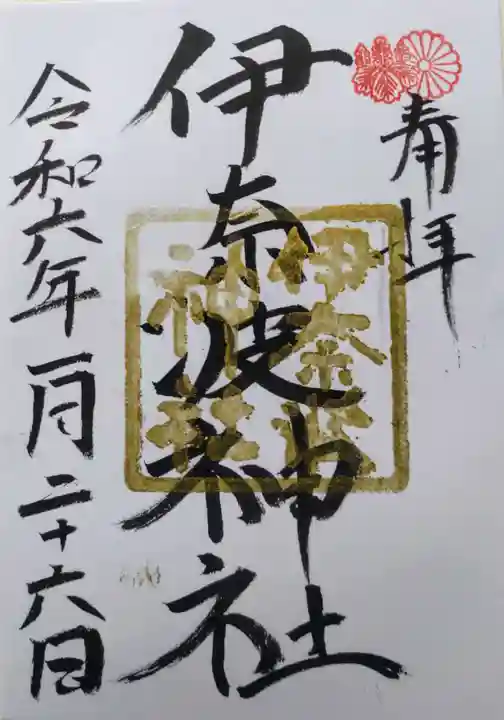 奉拝
伊奈波神社
伊奈波
神社
令和六年一月二十六日